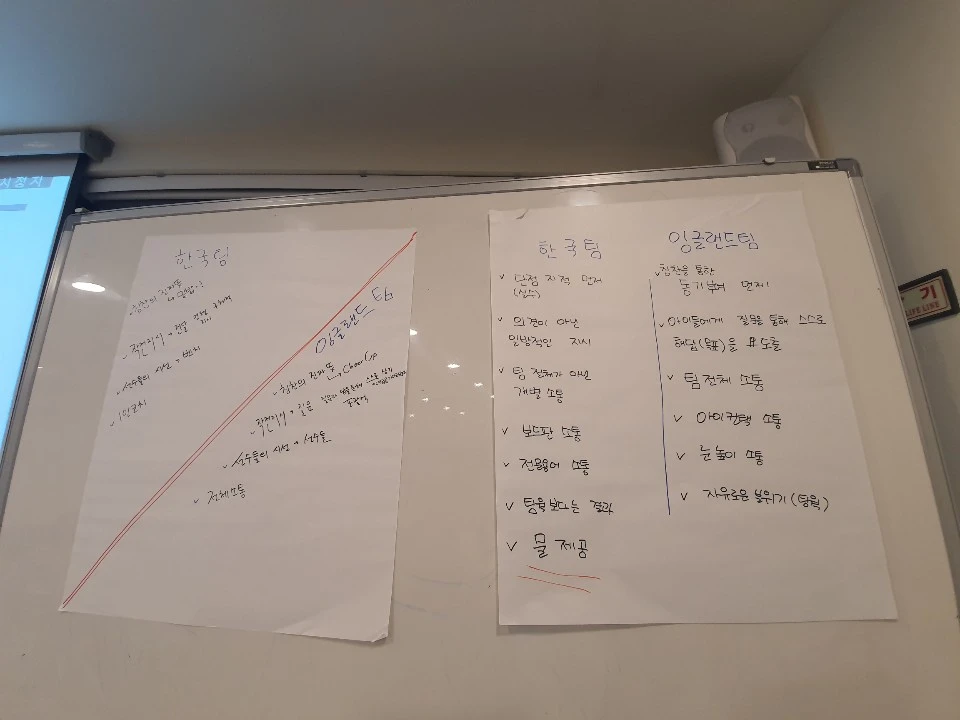 시정지
한국팀
칭찬의 진정
작전지시 → 전술
선수들의 시선 → 벤치
1인코치
잉글랜드 팀
칭찬의 → Cheer Up
작전지시 → 질문
선수들의 시선 → 선수들
전체소통
한국팀
✓ 단점 지적 먼저
(실수)
✓ 의견이 아닌
일방적인 지시
✓ 팀 전체가 아닌
개별 소통
✓ 보드판 소통
✓ 전용용어 소통
✓ 팀웍보다는 결과
✓ 물 제공
잉글랜드팀
✓ 칭찬을 통한
동기부여 먼저!
✓ 아이들에게 질문을 통해 스스로
해답(목표)을 도출
✓ 팀 전체 소통
✓ 아이컨택 소통
✓ 눈높이 소통
✓ 자유로운 분위기 (팀웍)
기
LIFE LINE